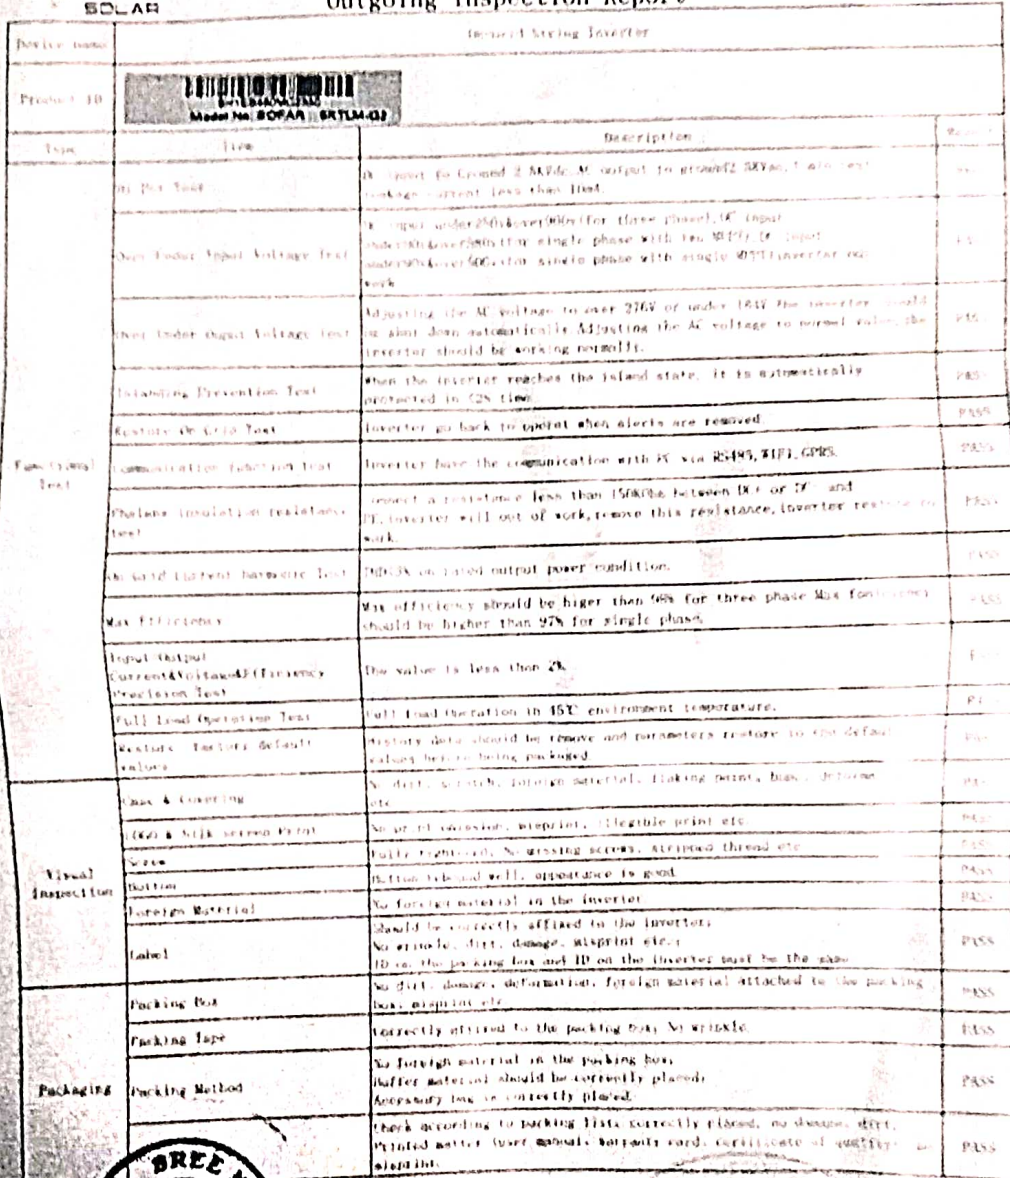 SOLAR
Outgoing Inspection Report
Device name
String Inverter
Product ID
Model No: SOFAR SKTLM-G2
Type
Item
Description
Hi Pot Test
input to Ground 2.8KVdc, AC output to ground2.8KVac, 1 min test
leakage current less than 10mA.
Over Under Input Voltage Test
input under250v&over900v(for three phase), DC input
for single phase with two MPPT), DC input
for single phase with single MPPT)inverter
work
Over Under Voltage Test
Adjusting the AC voltage to over 276V or under 184V the inverter should
shut down automatically.Adjusting the AC voltage to normal value, the
inverter should be working normally.
Islanding Prevention Test
When the inverter reaches the island state, it is automatically
protected in <2s time
PASS
Restore On Grid Test
Inverter go back to operat when alerts are removed.
PASS
Functional
Test
Communication function test
Inverter have the communication with PC via RS485,WIFI,GPRS.
PASS
insulation resistance
test
Connect a resistance less than between DC+ or DC- and
PE,inverter will out of work,remove this resistance,inverter restore to
work.
PASS
On Grid Current harmonic Test
THD<3% on rated output power condition.
PASS
Max Efficiency
Max efficiency should be higer than 98% for three phase Max
should be higher than 97% for single phase.
PASS
Input Output
Current&Voltage&Efficiency
Precision Test
The value is less than 2%
Full Load Operation Test
Full Load Operation in 45℃ environment temperature.
Restore factory default
values
History data should be remove and parameters restore to the default
values before being packaged
Case & Covering
No dirt, scratch, foreign material, flaking paint, deforme
etc
LOGO & Silk screen Print
No print omission, misprint, illegible print etc.
PASS
Visual
Inspection
Screw
Fully tightened, No missing screws, stripped thread etc
PASS
Button
Button rebound well, appearance is good
PASS
Foreign Material
No foreign material in the inverter.
PASS
Label
Should be correctly affixed to the inverter;
No wrinkle, dirt, damage, misprint etc.;
ID on the packing box and ID on the inverter must be the same
PASS
Packing Box
No dirt, damage, deformation, foreign material attached to the packing
box, misprint etc
PASS
Packing Tape
Correctly affixed to the packing box; No wrinkle.
PASS
Packaging
Packing Method
No foreign material in the packing box;
Buffer material should be correctly placed;
Accessory bag is correctly placed.
PASS
Check according to packing list: correctly placed, no damage, dirt.
Printed matter (user manual, warranty card, certificate of quality no
misprint.
PASS
SREE